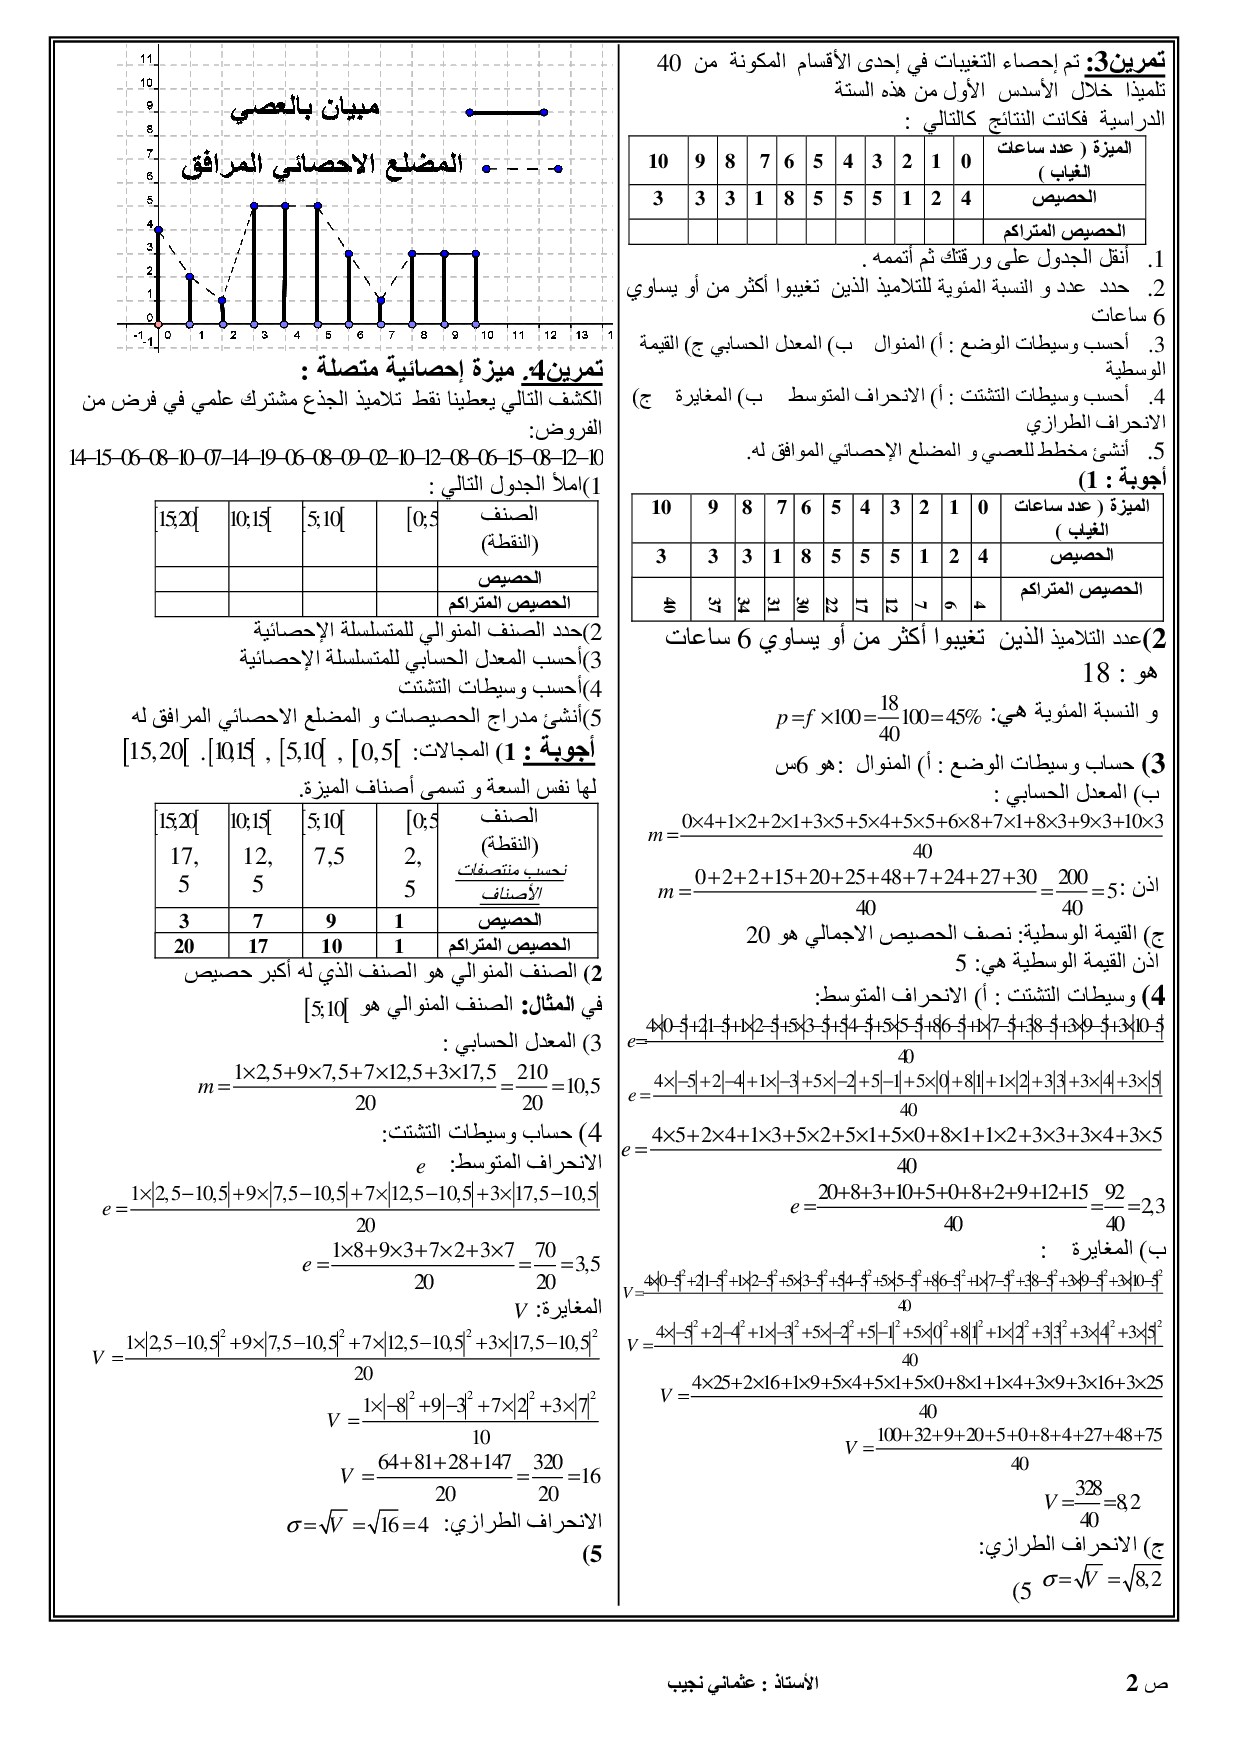 تمرين3: تم إحصاء التغيبات في إحدى الأقسام المكونة من 40
تلميذا خلال الأسدس الأول من هذه الستة
الدراسية فكانت النتائج كالتالي :
الميزة ( عدد ساعات الغياب ) 0 1 2 3 4 5 6 7 8 9 10
الحصيص 4 2 1 5 5 5 8 1 3 3 3
الحصيص المتراكم
1. أنقل الجدول على ورقتك ثم أتممه .
2. حدد عدد و النسبة المئوية للتلاميذ الذين تغيبوا أكثر من أو يساوي
6 ساعات
3. أحسب وسيطات الوضع : أ) المنوال ب) المعدل الحسابي ج) القيمة
الوسطية
4. أحسب وسيطات التشتت : أ) الانحراف المتوسط ب) المغايرة ج)
الانحراف الطرازي
5. أنشئ مخطط للعصي و المضلع الإحصائي الموافق له.
أجوبة : 1)
الميزة ( عدد ساعات الغياب ) 0 1 2 3 4 5 6 7 8 9 10
الحصيص 4 2 1 5 5 5 8 1 3 3 3
الحصيص المتراكم 4 6 7 12 17 22 30 31 34 37 40
2)عدد التلاميذ الذين تغيبوا أكثر من أو يساوي 6 ساعات
هو : 18
و النسبة المئوية هي: p=f×100=18/40 100=45%
3) حساب وسيطات الوضع : أ) المنوال :هو 6س
ب) المعدل الحسابي :
m=(0×4+1×2+2×1+3×5+5×4+5×5+6×8+7×1+8×3+9×3+10×3)/40
اذن: m=(0+2+2+15+20+25+48+7+24+27+30)/40=200/40=5
ج) القيمة الوسطية: نصف الحصيص الاجمالي هو 20
اذن القيمة الوسطية هي: 5
4) وسيطات التشتت : أ) الانحراف المتوسط:
e=(4×|0-5|+2|1-5|+1×|2-5|+5×|3-5|+5|4-5|+5×|5-5|+8|6-5|+1×|7-5|+3|8-5|+3×|9-5|+3×|10-5|)/40
e=(4×|-5|+2|-4|+1×|-3|+5×|-2|+5|-1|+5×|0|+8|1|+1×|2|+3|3|+3×|4|+3×|5|)/40
e=(4×5+2×4+1×3+5×2+5×1+5×0+8×1+1×2+3×3+3×4+3×5)/40
e=(20+8+3+10+5+0+8+2+9+12+15)/40=92/40=2,3
ب) المغايرة :
V=(4×|0-5|²+2|1-5|²+1×|2-5|²+5×|3-5|²+5|4-5|²+5×|5-5|²+8|6-5|²+1×|7-5|²+3|8-5|²+3×|9-5|²+3×|10-5|²)/40
V=(4×|-5|²+2|-4|²+1×|-3|²+5×|-2|²+5|-1|²+5×|0|²+8|1|²+1×|2|²+3|3|²+3×|4|²+3×|5|²)/40
V=(4×25+2×16+1×9+5×4+5×1+5×0+8×1+1×4+3×9+3×16+3×25)/40
V=(100+32+9+20+5+0+8+4+27+48+75)/40
V=328/40=8,2
ج) الانحراف الطرازي:
σ=√V=√8,2 5)
11
10
9
8
7
6
5
4
3
2
1
0
-1
-1 0 1 2 3 4 5 6 7 8 9 10 11 12 13 1
مبيان بالعصي
المضلع الاحصائي المرافق
تمرين4: ميزة إحصائية متصلة :
الكشف التالي يعطينا نقط تلاميذ الجذع مشترك علمي في فرض من
الفروض:
14–15–06–08–10–07–14–19–06–08–09–02–10–12–08–06–15–08–12–10
1)املأ الجدول التالي :
الصنف (النقطة) [0;5 [5;10[ 10;15[ [15;20[
الحصيص
الحصيص المتراكم
2)حدد الصنف المنوالي للمتسلسلة الإحصائية
3)أحسب المعدل الحسابي للمتسلسلة الإحصائية
4)أحسب وسيطات التشتت
5)أنشئ مدراج الحصيصات و المضلع الاحصائي المرافق له
أجوبة : 1) المجالات: [0,5[ , [5,10[ , [10,15[ . [15,20[
لها نفس السعة و تسمى أصناف الميزة.
الصنف (النقطة) [0;5 [5;10[ 10;15[ [15;20[
نحسب منتصفات الأصناف 2,5 7,5 12,5 17,5
الحصيص 1 9 7 3
الحصيص المتراكم 1 10 17 20
2) الصنف المنوالي هو الصنف الذي له أكبر حصيص
في المثال: الصنف المنوالي هو [5;10[
3) المعدل الحسابي :
m=(1×2,5+9×7,5+7×12,5+3×17,5)/20=210/20=10,5
4) حساب وسيطات التشتت:
الانحراف المتوسط: e
e=(1×|2,5-10,5|+9×|7,5-10,5|+7×|12,5-10,5|+3×|17,5-10,5|)/20
e=(1×8+9×3+7×2+3×7)/20=70/20=3,5
المغايرة: V
V=(1×|2,5-10,5|²+9×|7,5-10,5|²+7×|12,5-10,5|²+3×|17,5-10,5|²)/20
V=(1×|-8|²+9|-3|²+7×|2|²+3×|7|²)/10
V=(64+81+28+147)/20=320/20=16
الانحراف الطرازي: σ=√V=√16=4
5)
ص 2 الأستاذ : عثماني نجيب